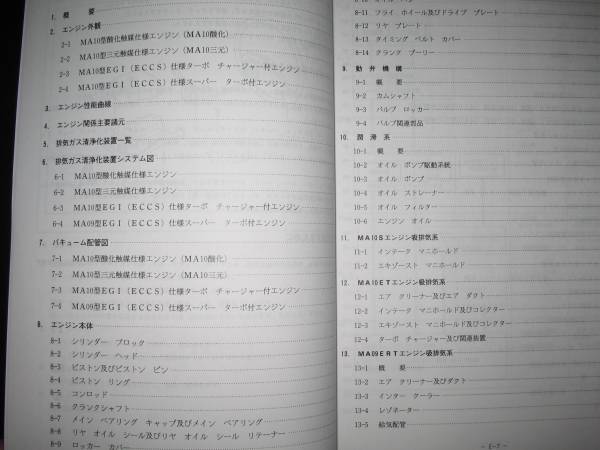 1. 概 要
2. エンジン外観
2-1 MA10型酸化触媒仕様エンジン(MA10酸化)
2-2 MA10型三元触媒仕様エンジン(MA10三元)
2-3 MA10型EGI(ECCS)仕様ターボ チャージャー付エンジン
2-4 MA09型EGI(ECCS)仕様スーパー ターボ付エンジン
3. エンジン性能曲線
4. エンジン関係主要諸元
5. 排気ガス清浄化装置一覧
6. 排気ガス清浄化装置システム図
6-1 MA10型酸化触媒仕様エンジン
6-2 MA10型三元触媒仕様エンジン
6-3 MA10型EGI(ECCS)仕様ターボ チャージャー付エンジン
6-4 MA09型EGI(ECCS)仕様スーパー ターボ付エンジン
7. バキューム配管図
7-1 MA10型酸化触媒仕様エンジン(MA10酸化)
7-2 MA10型三元触媒仕様エンジン(MA10三元)
7-3 MA10型EGI(ECCS)仕様ターボ チャージャー付エンジン
7-4 MA09型EGI(ECCS)仕様スーパー ターボ付エンジン
8. エンジン本体
8-1 シリンダー ブロック
8-2 シリンダー ヘッド
8-3 ピストン及びピストン ピン
8-4 ピストン リング
8-5 コンロッド
8-6 クランクシャフト
8-7 メイン ベアリング キャップ及びメイン ベアリング
8-8 リヤ オイル シール及びリヤ オイル シール リテーナー
8-9 ロッカー カバー
8-11 フライ ホイール及びドライブ プレート
8-12 リヤ プレート
8-13 タイミング ベルト カバー
8-14 クランク プーリー
9. 動弁機構
9-1 概 要
9-2 カムシャフト
9-3 バルブ ロッカー
9-4 バルブ関連部品
10. 潤滑系
10-1 概 要
10-2 オイル ポンプ駆動系統
10-3 オイル ポンプ
10-4 オイル ストレーナー
10-5 オイル フィルター
10-6 エンジン オイル
11. MA10Sエンジン吸排気系
11-1 インテーク マニホールド
11-2 エキゾースト マニホールド
12. MA10ETエンジン吸排気系
12-1 エア クリーナー及びエア ダクト
12-2 インテーク マニホールド及びコレクター
12-3 エキゾースト マニホールド及びコレクター
12-4 ターボ チャージャー及び関連装置
13. MA09ERTエンジン吸排気系
13-1 概 要
13-2 エア クリーナー及びダクト
13-3 インター クーラー
13-4 レゾネーター
13-5 給気配管